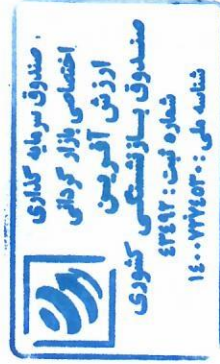 صندوق سرمایه گذاری
اختصاصی بازار گردانی
ارزش آفرین
صندوق بازنشستگی کشوری
شماره ثبت : ٤٣٤٩٢
شناسه ملی : ١٤٠٠٧٧٧٤٥٣٠